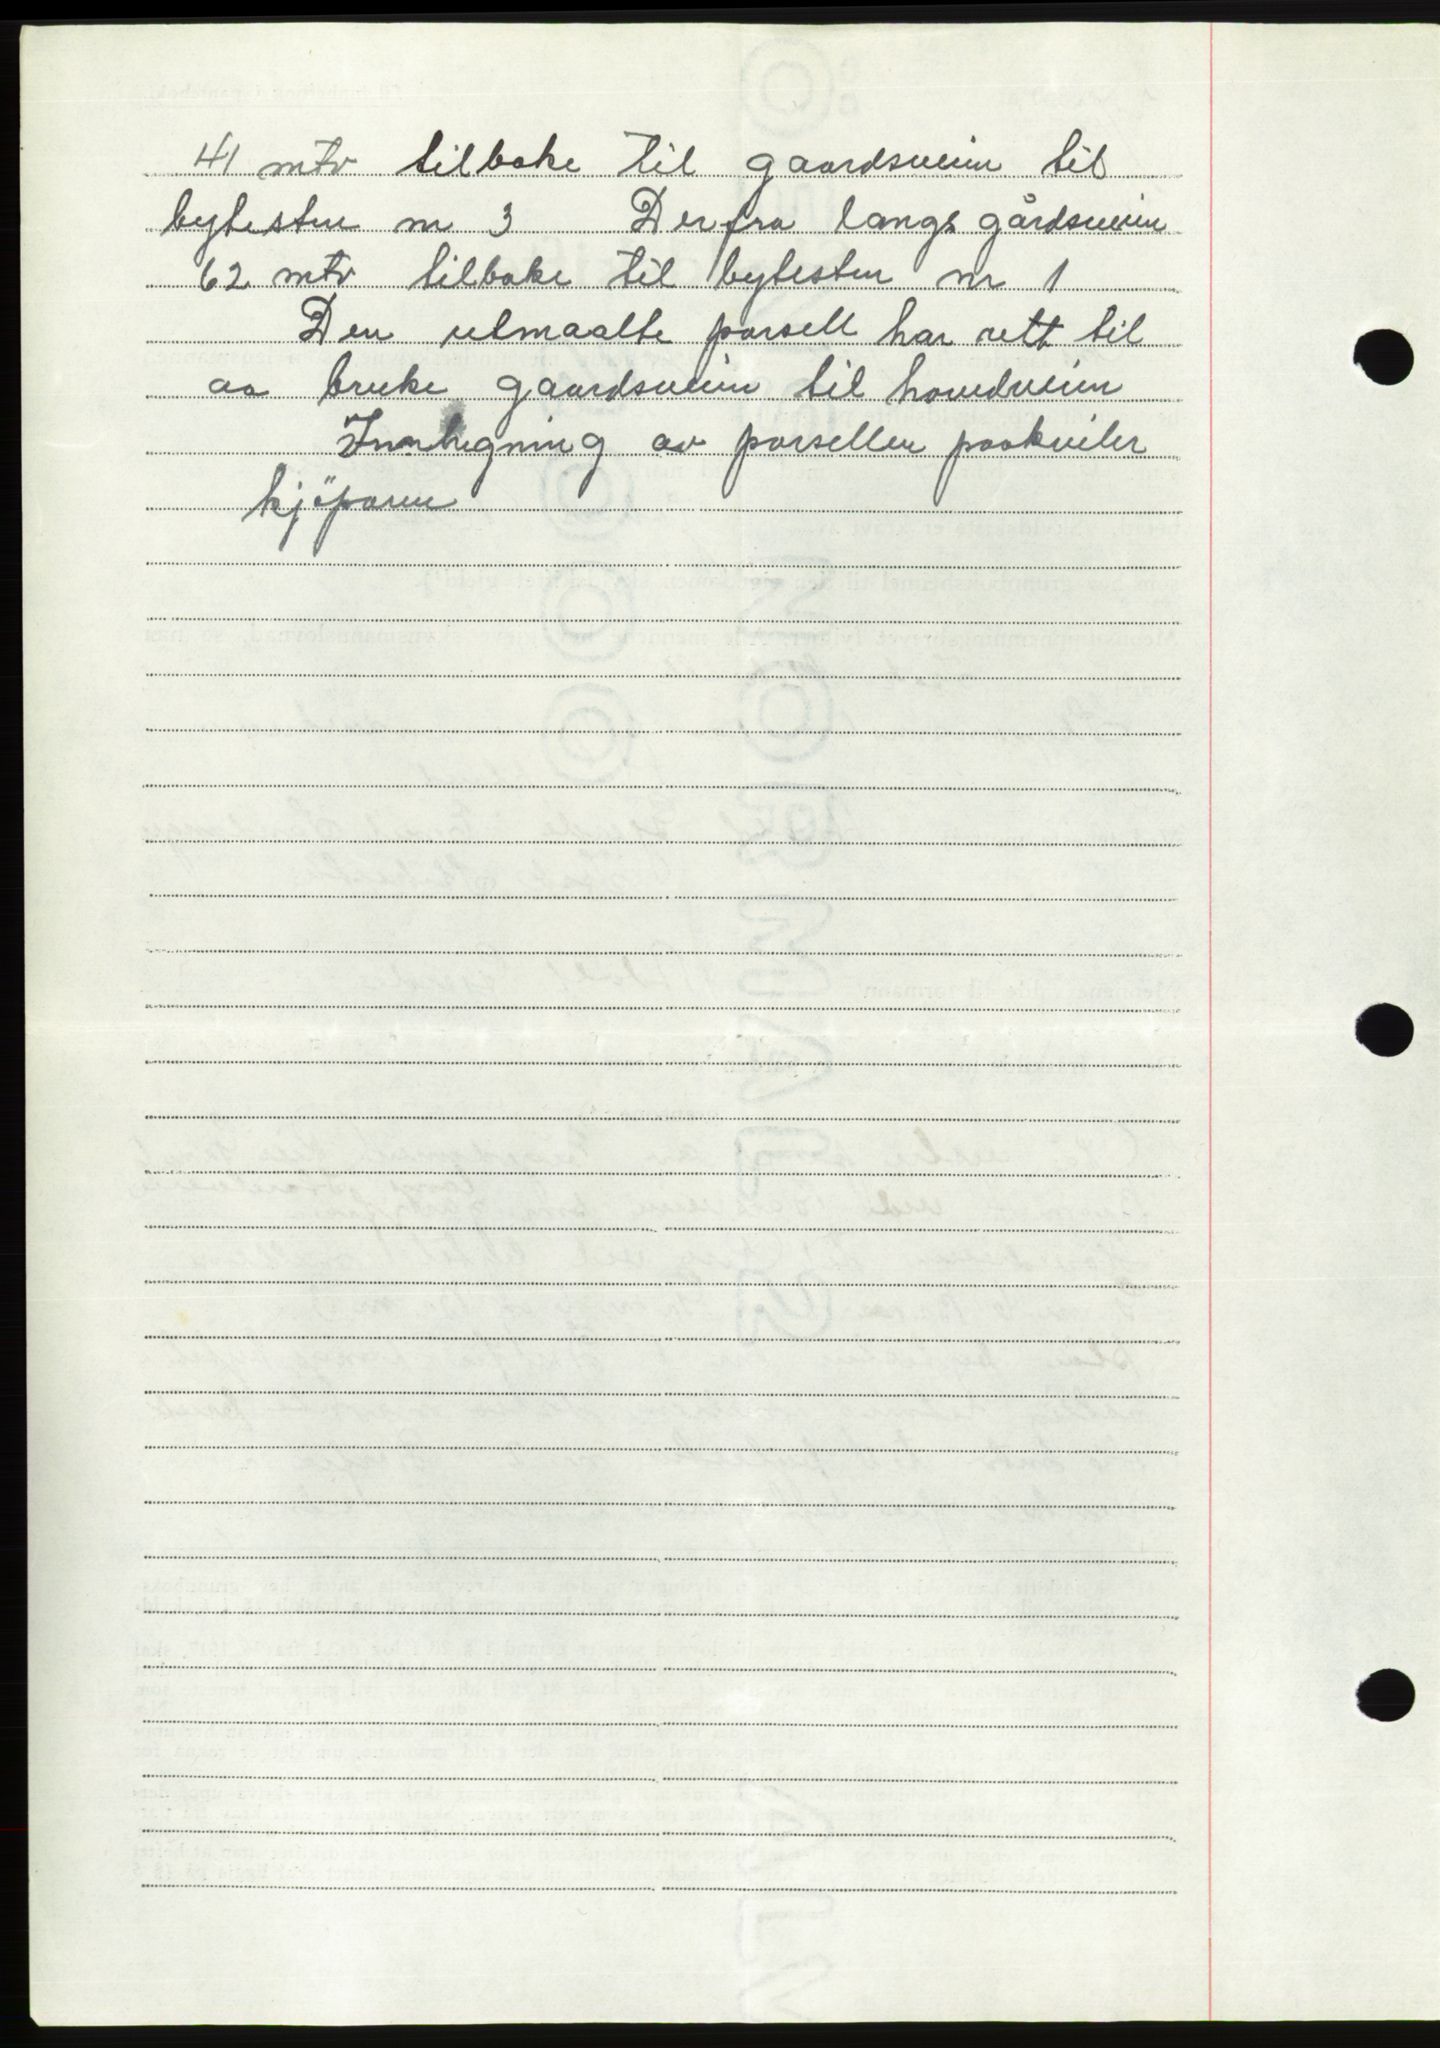 41 mtr tilbake til gaardsveien til
bytesten nr 3 Derfra langs gårdsveien
62 mtr tilbake til bytesten nr 1
Den utmaalte parsell har rett til
aa bruke gaardsveien til hovedveien
Innhegning av parsellen paakviler
kjöparen